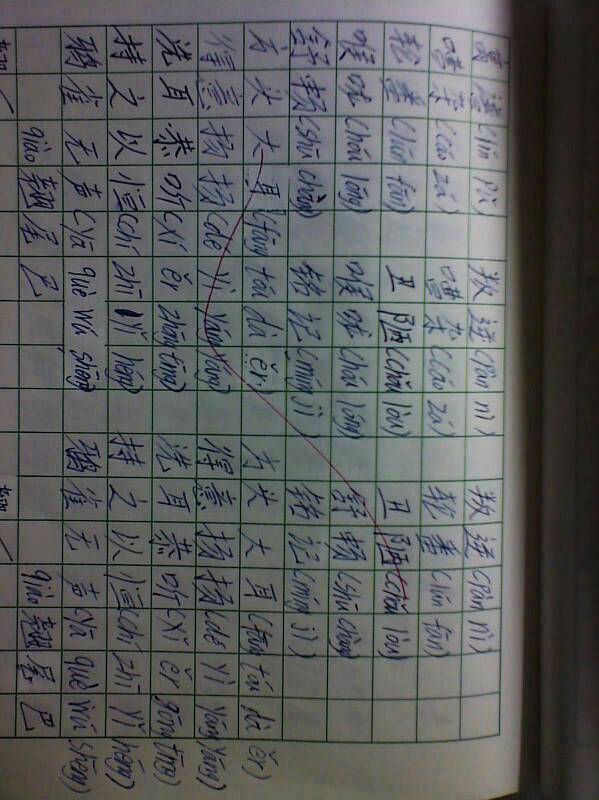 叛逆(pàn nì) 叛逆(pàn nì)
嘈杂(cáo zá) 嘈杂(cáo zá) 轮番(lún fān)
轮番(lún fān) 丑陋(chǒu lòu) 丑陋(chǒu lòu)
喉咙(hóu lóng) 喉咙(hóu lóng) 舒畅(shū chàng)
舒畅(shū chàng) 铭记(míng jì) 铭记(míng jì)
方头大耳(fāng tóu dà ěr) 方头大耳(fāng tóu dà ěr)
得意扬扬(dé yì yáng yáng) 得意扬扬(dé yì yáng yáng)
洗耳恭听(xǐ ěr gōng tīng) 洗耳恭听(xǐ ěr gōng tīng)
持之以恒(chí zhī yǐ héng) 持之以恒(chí zhī yǐ héng)
鸦雀无声(yā què wú shēng) 鸦雀无声(yā què wú shēng)
qiào 翘尾巴 qiào 翘尾巴